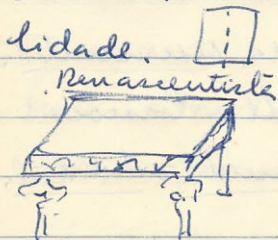 lidade.
Renascentista